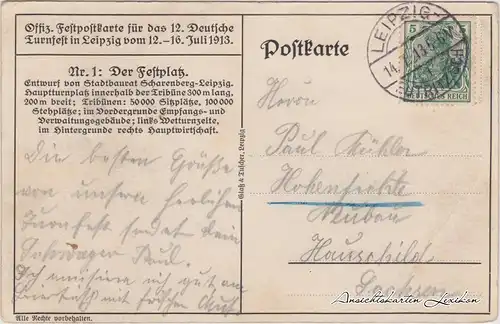 Offiz. Festpostkarte für das 12. Deutsche
Turnfest in Leipzig vom 12.–16. Juli 1913.
Nr. 1: Der Festplatz.
Entwurf von Stadtbaurat Scharenberg-Leipzig.
Hauptturnplatz innerhalb der Tribüne 300 m lang,
200 m breit; Tribünen: 50000 Sitzplätze, 100000
Stehplätze; im Vordergrunde Empfangs- und
Verwaltungsgebäude; links Wetturnzelte,
im Hintergrunde rechts Hauptwirtschaft.
Die besten Grüße
von unserm herlichen
Turnfest sendet Dein
Schwager Paul.
Ich amüsiere mich gut am
mit
Alle Rechte vorbehalten.
Glaß & Tuscher, Leipzig
Postkarte
LEIPZIG-
14.
13.
5
DEUTSCHES REICH
Herrn
Paul Mühler
Hohenfichte
Neubau
Hauschild
Sachsen
Ansichtskarten Lexikon